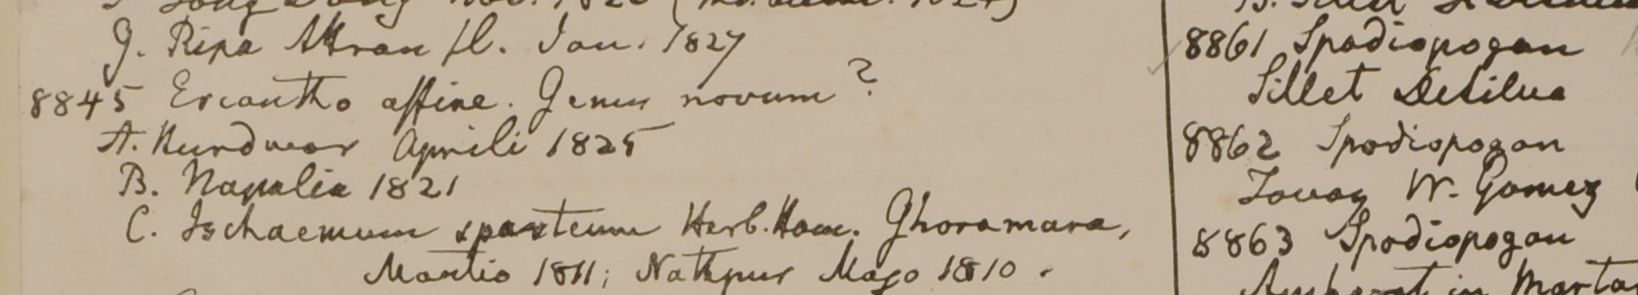 G. Ripa Attran fl. Jan. 1827
8845 Eriantho affine. Genus novum?
A. Hurdwar Aprili 1825
B. Napalia 1821
C. Ischaemum sparteum Herb. Ham. Ghoramara,
Martio 1811; Nathpur Majo 1810.
8861 Spodiopogon
Sillet DeSilva
8862 Spodiopogon
Tavoy W. Gomez
8863 Spodiopogon
Amherst in Marta